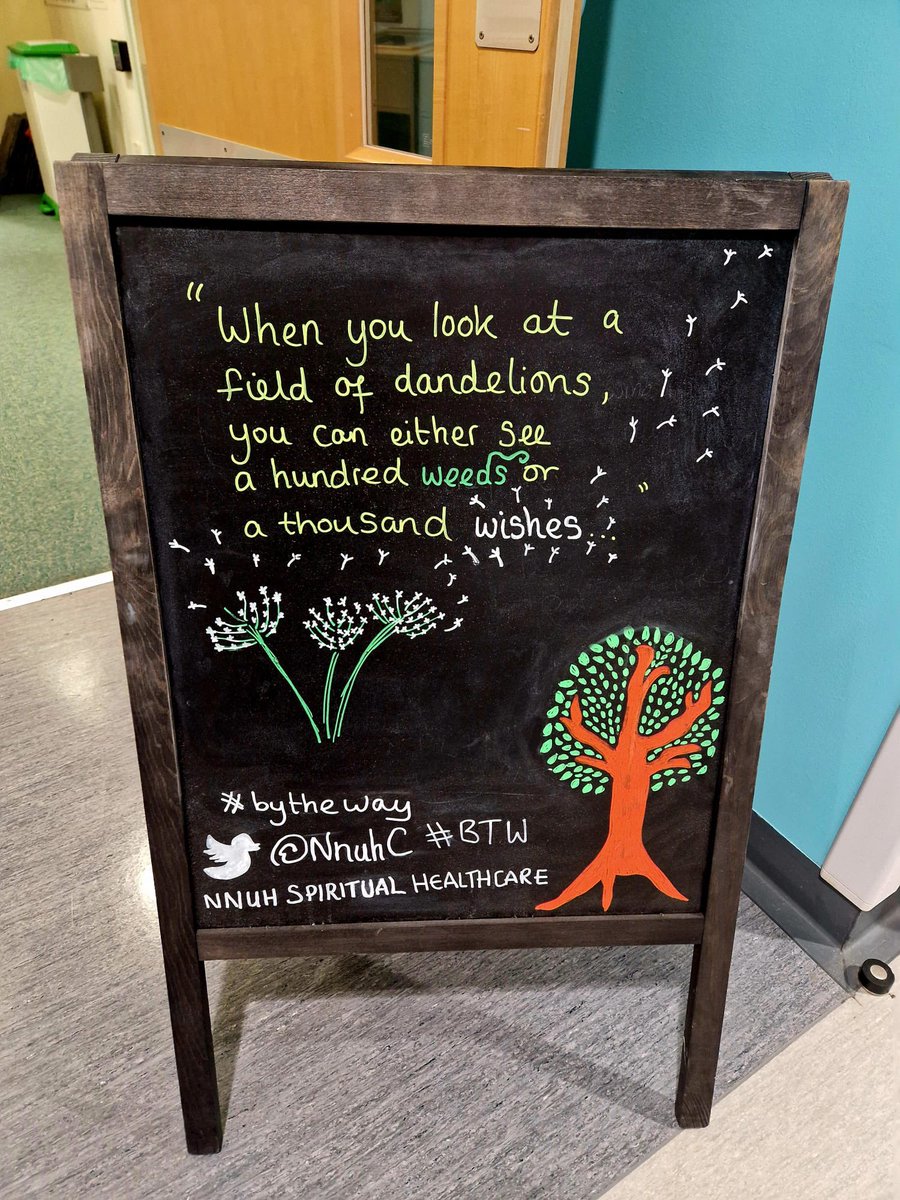 "When you look at a
field of dandelions,
you can either see
a hundred weeds or
a thousand wishes..."
#bytheway
@NnuhC #BTW
NNUH SPIRITUAL HEALTHCARE